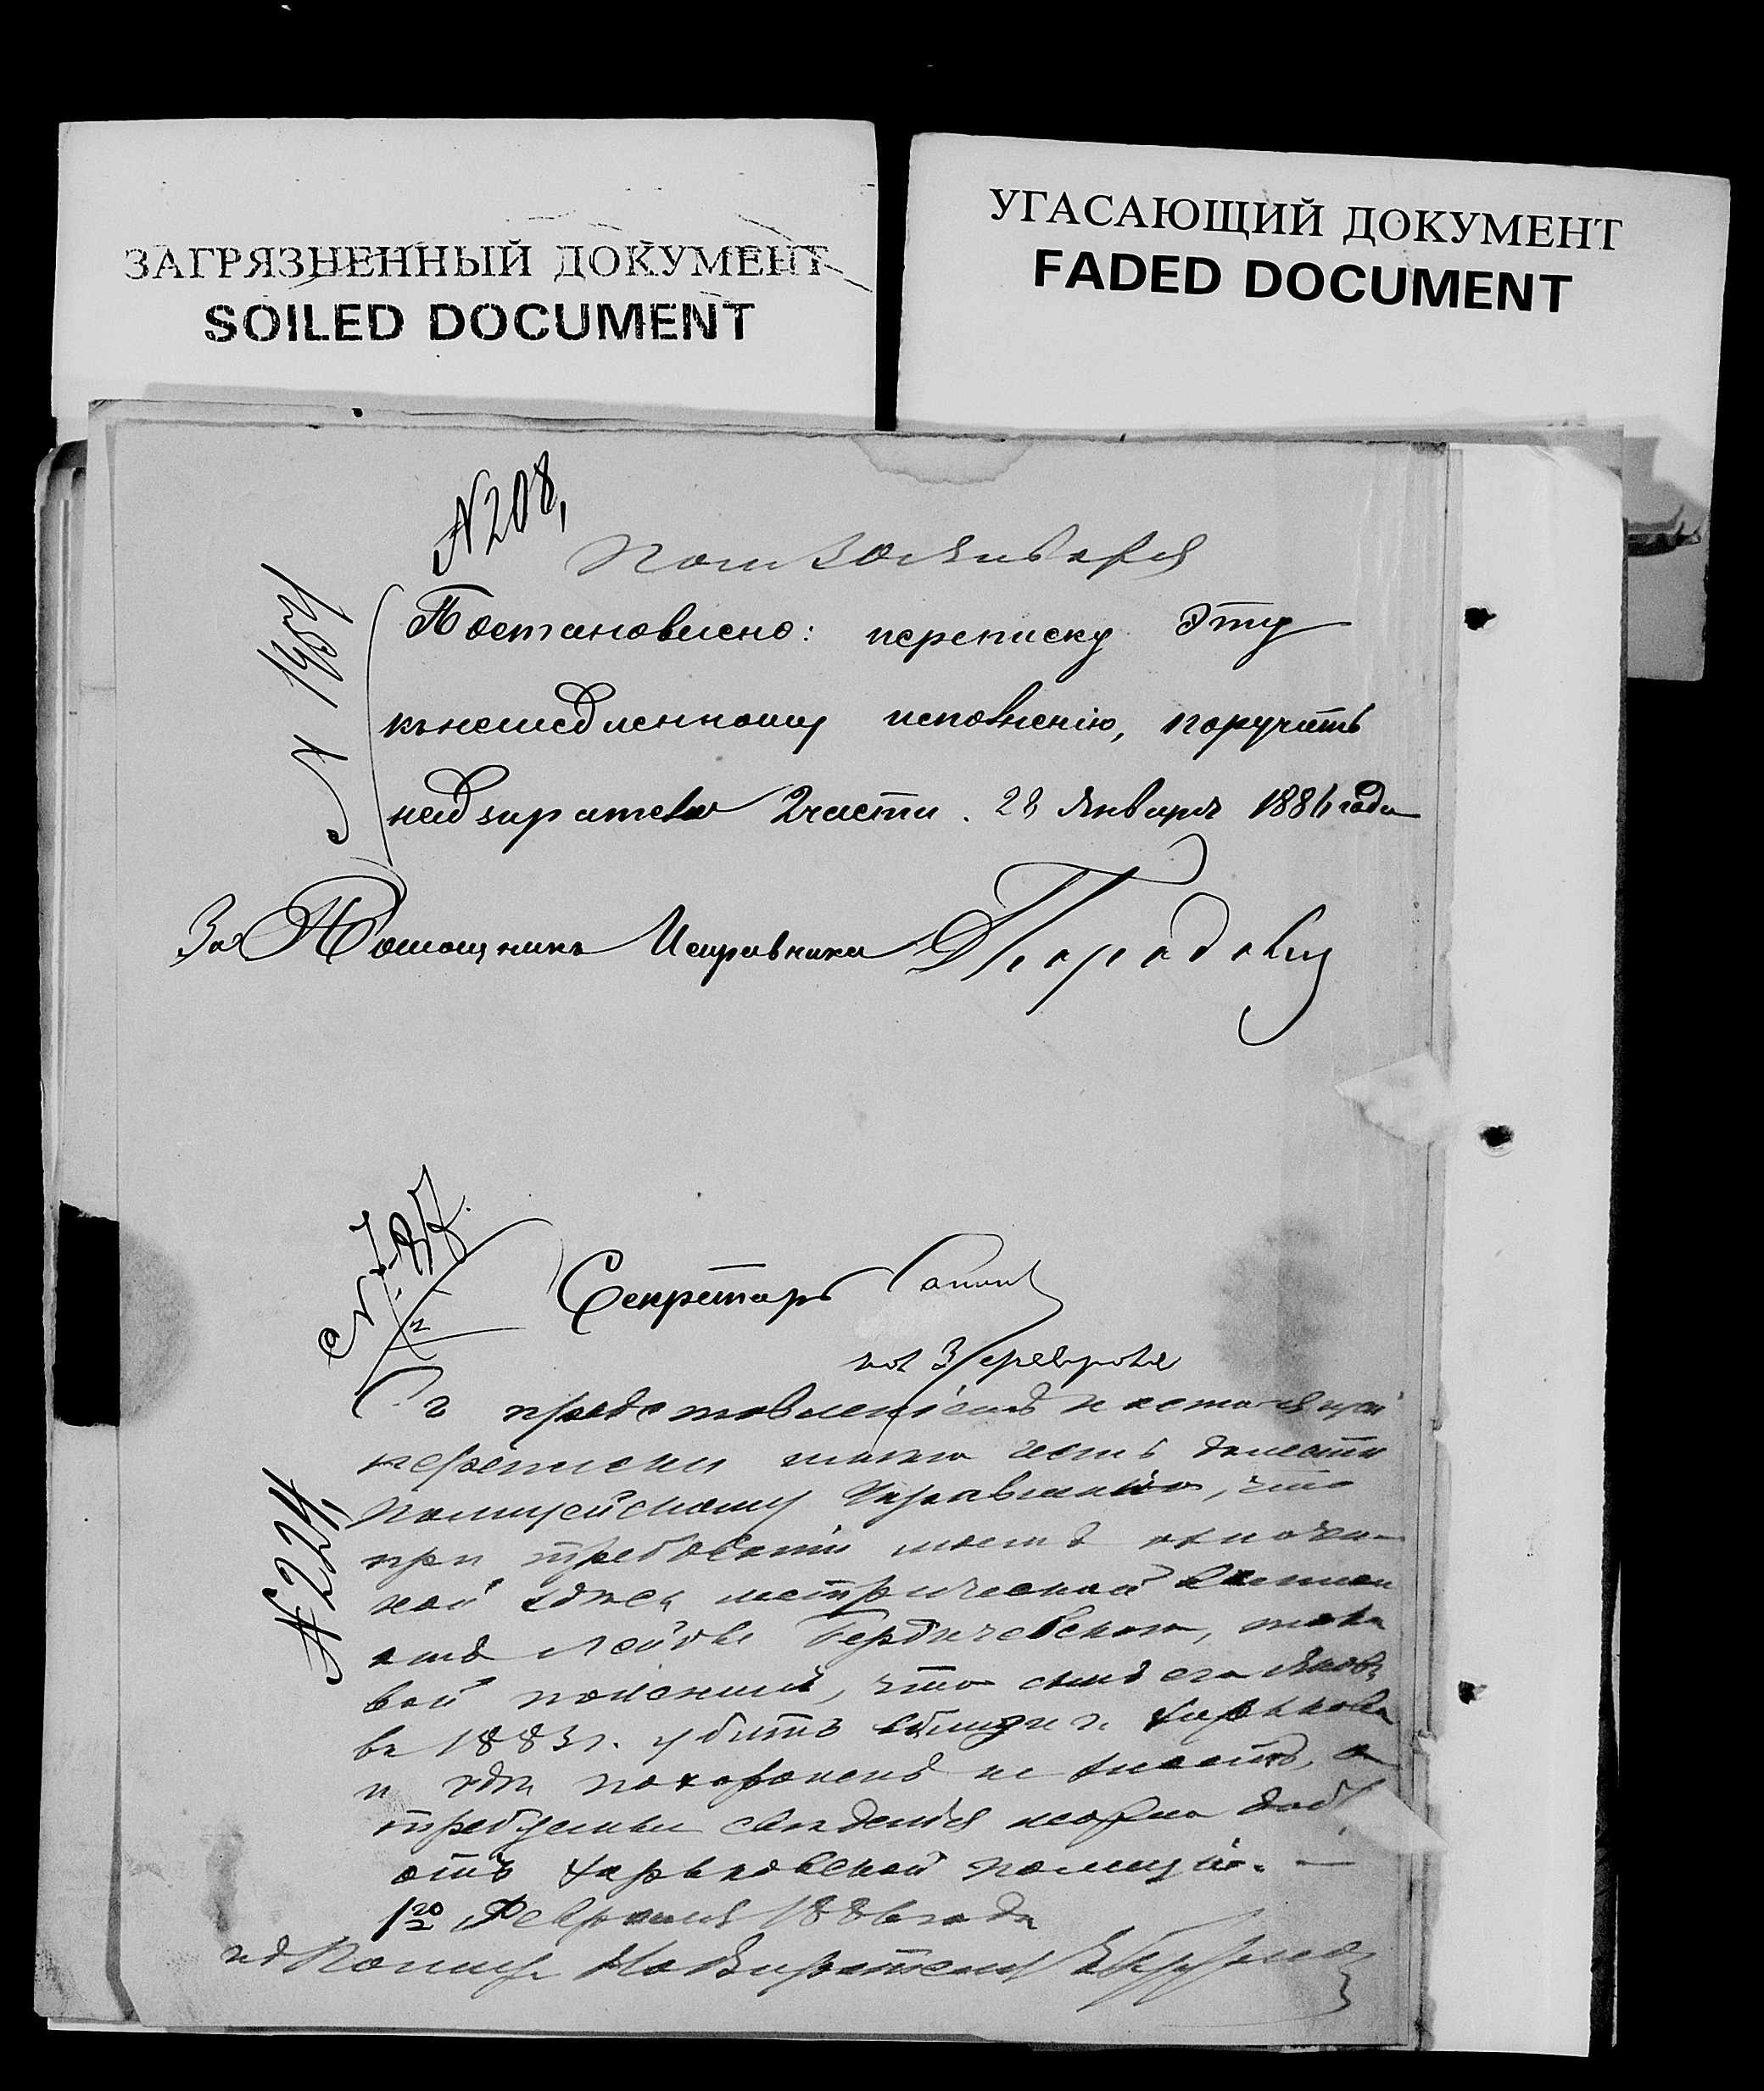 ЗАГРЯЗНЕННЫЙ ДОКУМЕНТ
SOILED DOCUMENT
УГАСАЮЩИЙ ДОКУМЕНТ
FADED DOCUMENT
№ 208,
Января
Постановлено: переписку эту
къ немедленному исполненію, поручить
надзирателю 2 части. 28 Января 1886 года
За Помощникъ Исправника
Секретарь
пол 3 февраля
Съ представленіемъ настоящей
переписки имею честь донести
Полицейскому Управленію, что
при требованіи мною
ной здесь метрической
отъ Лейбы Бердичевскаго, тако
вой пояснилъ, что сынъ его Янкель
въ 1883 г. убитъ вблизи г. Харькова
и где похороненъ не знаетъ, а
требуемыя сведенія можно
отъ Харьковской полиціи. —
№ 224,
1го Февраля 1886 года
ид Полиц. Надзирателя